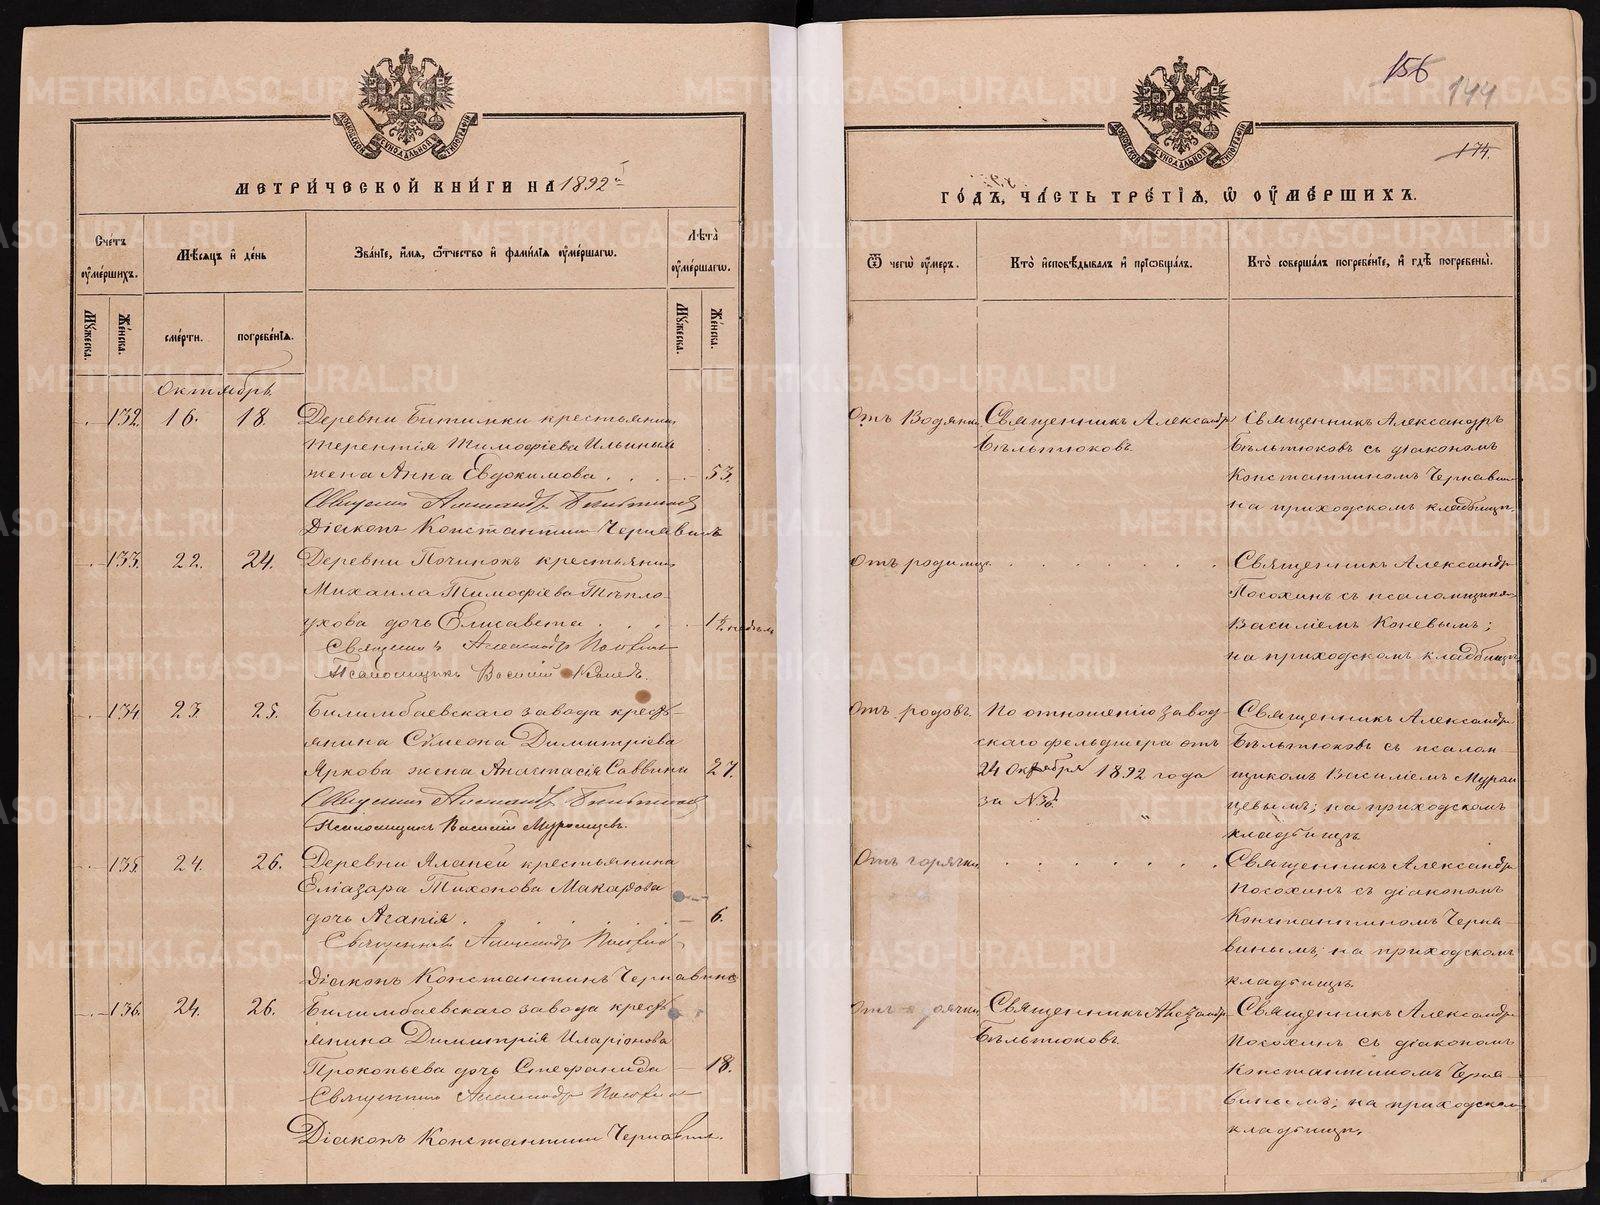 МЕТРИ́ЧЕСКОЙ КНИ́ГИ НА 1892й
Сче́тъ ᲂу҆ме́ршихъ.
Мѣ́сяцъ и҆ де́нь
Зва́нїе, и҆́мѧ, ѻ҆́тчество и҆ фами́лїѧ ᲂу҆ме́ршагѡ.
Лѣ́та ᲂу҆ме́ршагѡ.
Му́жеска.
Же́нска.
сме́рти.
погребе́нїѧ.
Му́жеска.
Же́нска.
Октябрь
132. 16. 18. Деревни Битимки крестьянина
Терентія Тимофіева Ильиныхъ
жена Анна Евдокимова . . . 53.
Священникъ Александръ Бѣльтюковъ
Діаконъ Константинъ Чернавинъ
133. 22. 24. Деревни Починокъ крестьянина
Михаила Тимофіева Тепло-
ухова дочь Елисавета . . . недѣль
Священникъ Александръ Посохинъ
Псаломщикъ Василій Коневъ.
134 23. 25. Билимбаевскаго завода кресть-
янина Сѵмеона Димитріева
Яркова жена Анастасія Саввина 27.
Священникъ Александръ Бѣльтюковъ
Псаломщикъ Василій Муромцевъ.
135. 24. 26. Деревни Аланей крестьянина
Еліазара Тихонова Макарова
дочь Агапія . . . . . 6.
Священникъ Александръ Посохинъ
Діаконъ Константинъ Чернавинъ
136. 24. 26. Билимбаевскаго завода кресть-
янина Димитрія Иларіонова
Прокопьева дочь Стефанида 18.
Священникъ Александръ Посохинъ
Діаконъ Константинъ Чернавинъ.
156
144
174.
ГО́ДЪ, ЧА́СТЬ ТРЕ́ТЇѦ, Ѡ҆ ОУ҆МЕ́РШИХЪ.
Ѿ чегѡ̀ ᲂу҆́меръ.
Кто̀ и҆сповѣ́дывалъ и҆ прїѡбща́лъ.
Кто̀ соверша́лъ погребе́нїе, и҆ гдѣ̀ погребены̀.
Отъ Водянки Священникъ Александръ Священникъ Александръ
Бѣльтюковъ. Бѣльтюковъ съ діакономъ
Константиномъ Чернавин-
на приходскомъ кладбищѣ.
Отъ родимца . . . . . . Священникъ Александръ
Посохинъ съ псаломщикомъ
Василіемъ Коневымъ;
на приходскомъ кладбищѣ
Отъ родовъ. По отношенію завод- Священникъ Александръ
скаго фельдшера отъ Бѣльтюковъ съ псалом-
24 Октября 1892 года щикомъ Василіемъ Муром
за № цевымъ; на приходскомъ
кладбищѣ
Отъ горячки . . . . . . Священникъ Александръ
Посохинъ съ діакономъ
Константиномъ Черна-
винымъ; на приходскомъ
кладбищѣ.
Отъ горячки Священникъ Александръ Священникъ Александръ
Бѣльтюковъ. Посохинъ съ діакономъ
Константиномъ Черна-
винымъ; на приходскомъ
кладбищѣ.
METRIKI.GASO-URAL.RU